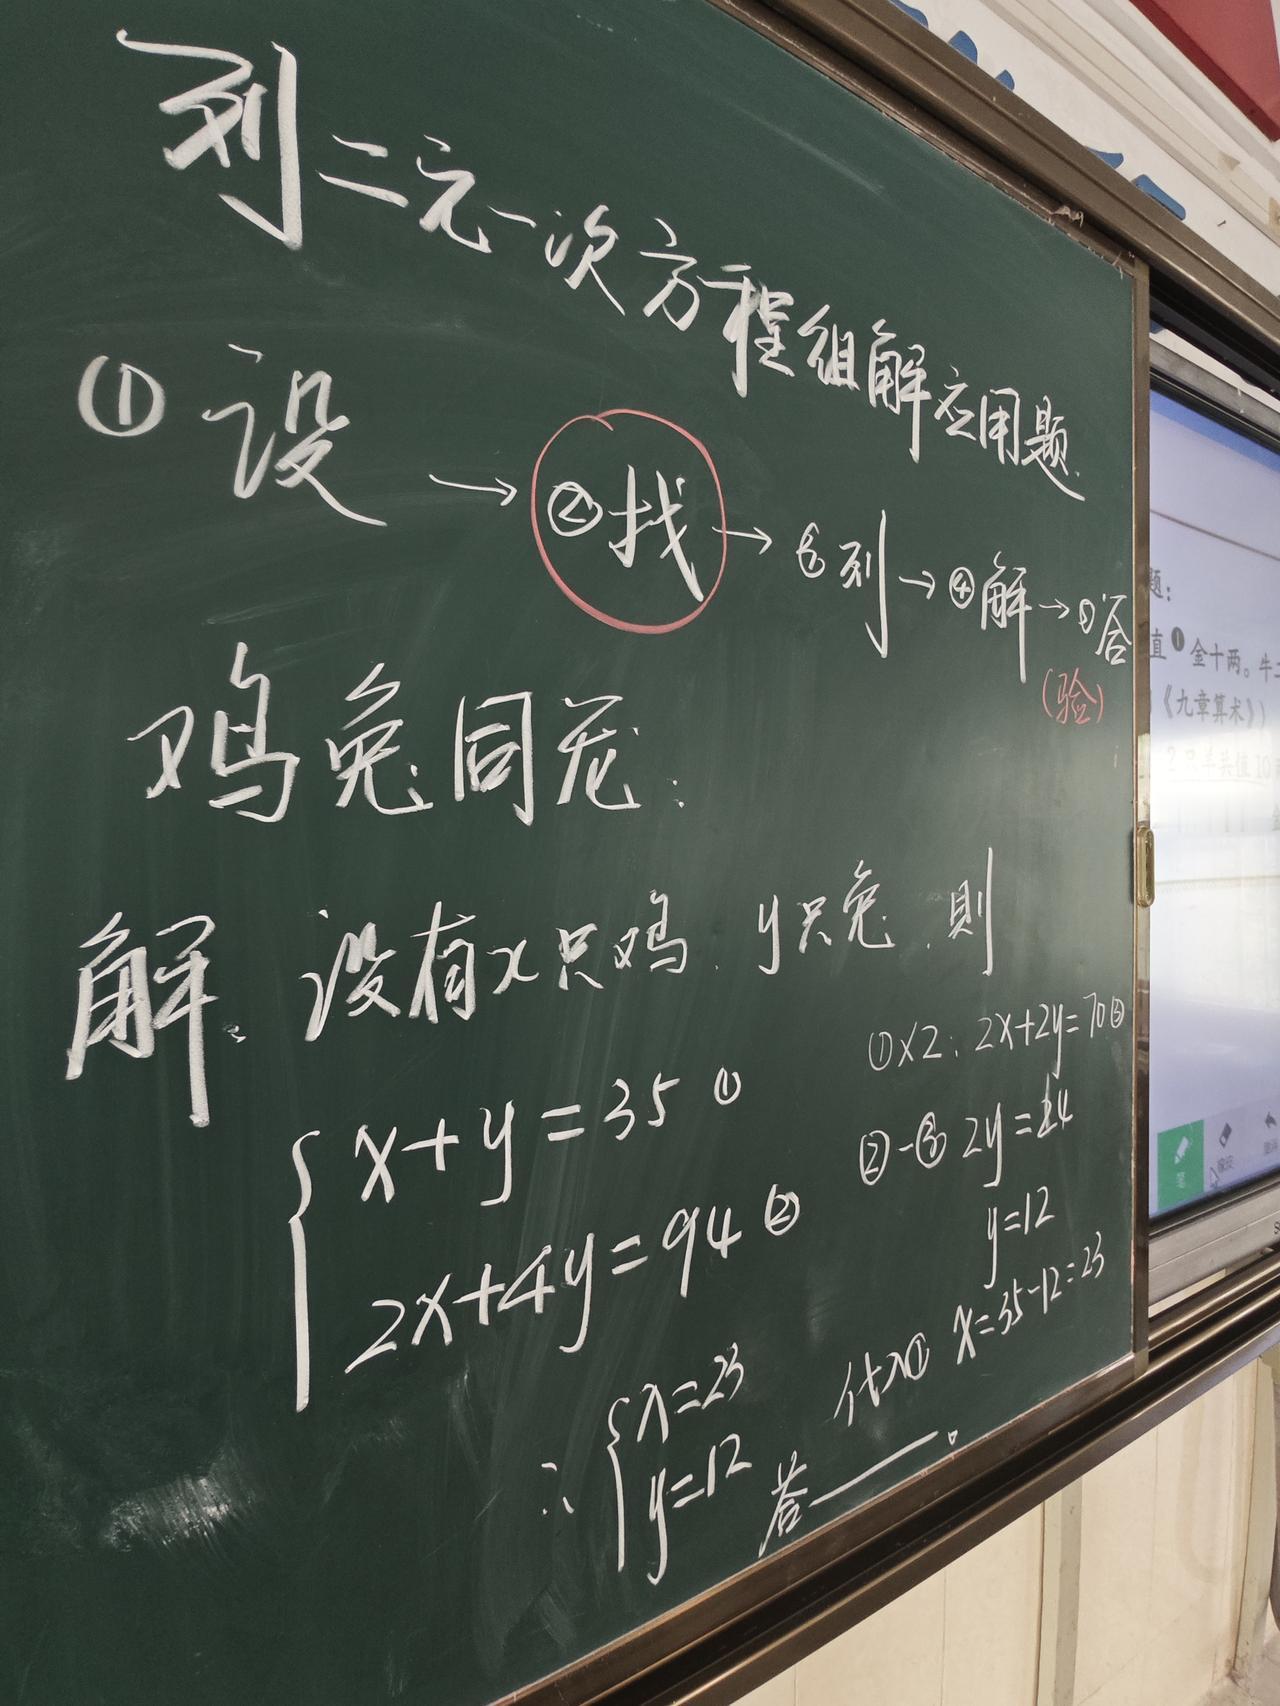 列二元一次方程组解应用题.
①设 → ②找 → ③列 → ④解 → ⑤答
(验)
鸡兔同笼:
解: 设有x只鸡, y只兔, 则
x+y=35 ①
2x+4y=94 ②
①×2: 2x+2y=70③
②-③ 2y=24
y=12
代入① x=35-12=23
∴ x=23
y=12
答____。
题:
直❶金十两。牛二
《九章算术》)
2只羊共值10
笔
橡皮